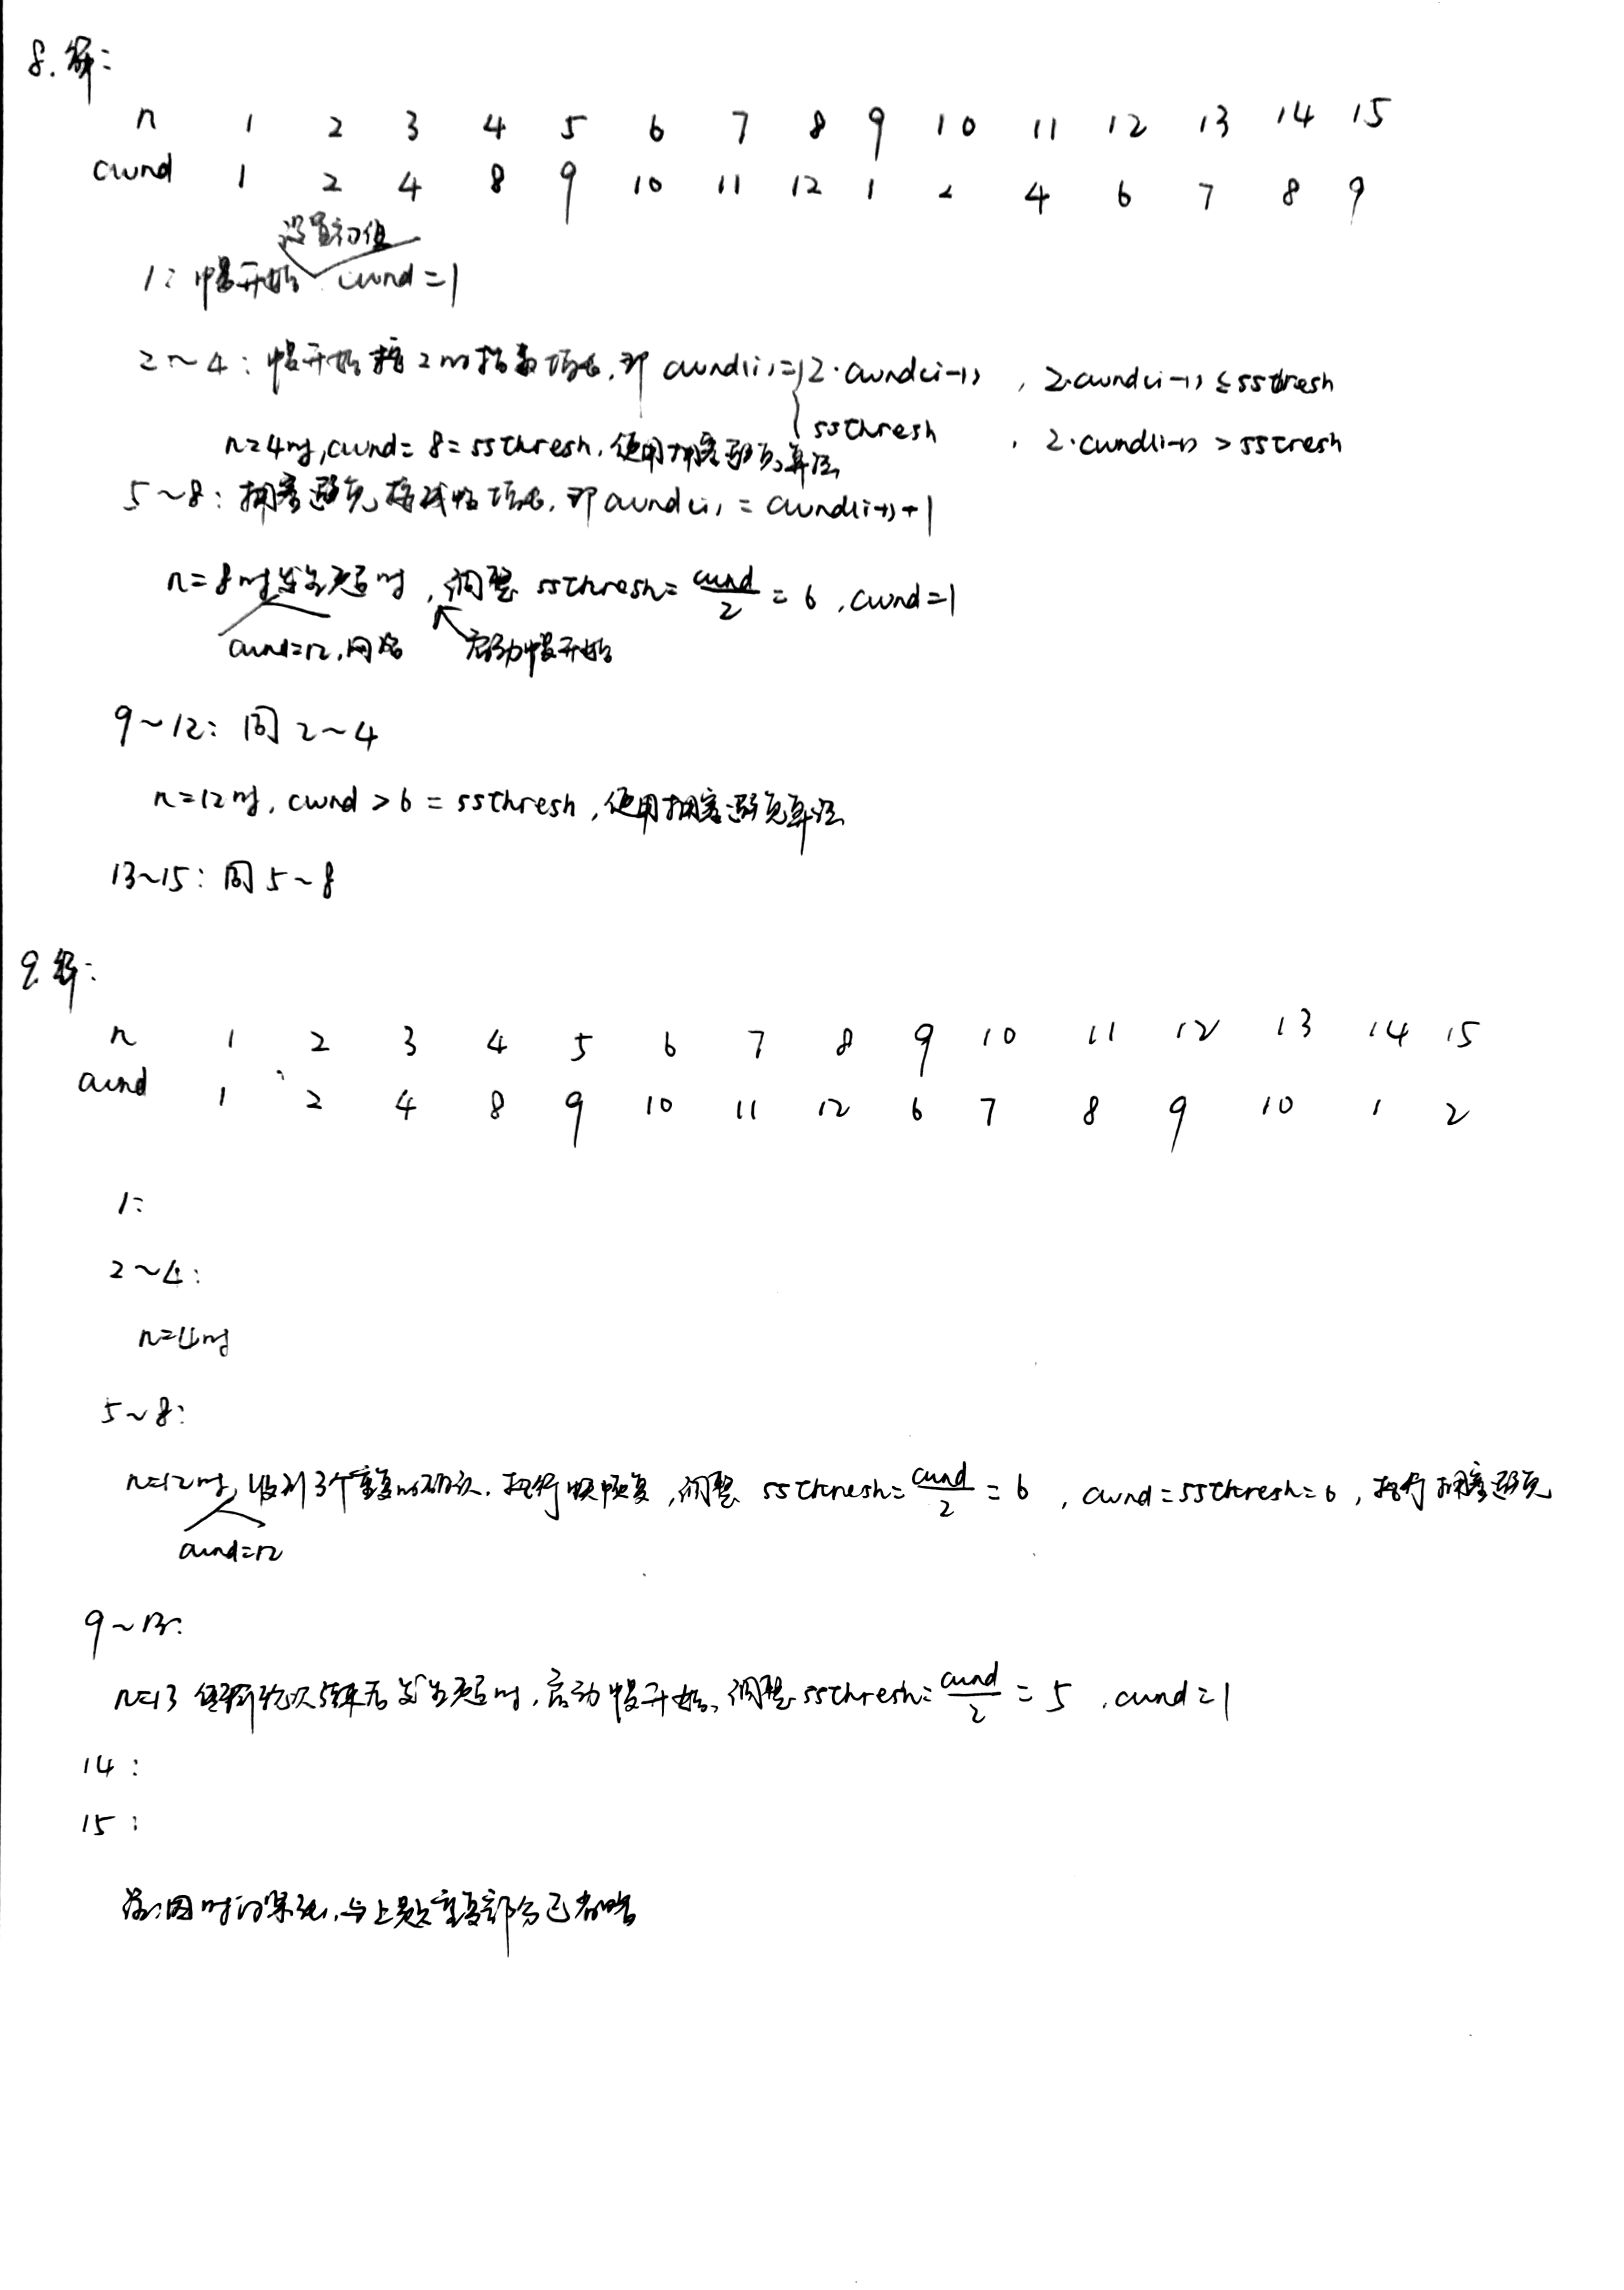 8. 解：
n 1 2 3 4 5 6 7 8 9 10 11 12 13 14 15
cwnd 1 2 4 8 9 10 11 12 1 2 4 6 7 8 9
设置初值
1：慢开始 cwnd=1
2~4：慢开始按2的指数增长，即 cwnd(i)={2·cwnd(i-1) , 2·cwnd(i-1)≤ssthresh
ssthresh , 2·cwnd(i-1)>sstresh
n=4时，cwnd=8=ssthresh，使用拥塞避免算法
5~8：拥塞避免按线性增长，即cwnd(i)=cwnd(i-1)+1
n=8时发生超时，调整 ssthresh=cwnd/2=6，cwnd=1
cwnd=12，网络 启动慢开始
9~12：同2~4
n=12时，cwnd>6=ssthresh，使用拥塞避免算法
13~15：同5~8
9. 解：
n 1 2 3 4 5 6 7 8 9 10 11 12 13 14 15
cwnd 1 2 4 8 9 10 11 12 6 7 8 9 10 1 2
1：
2~4：
n=4时
5~8：
n=12时，收到3个重复的确认，执行快恢复，调整 ssthresh=cwnd/2=6，cwnd=ssthresh=6，执行拥塞避免
cwnd=12
9~13：
n=13 轮次结束后发生超时，启动慢开始，调整ssthresh=cwnd/2=5，cwnd=1
14：
15：
因时间紧张，与上题重复部分已省略